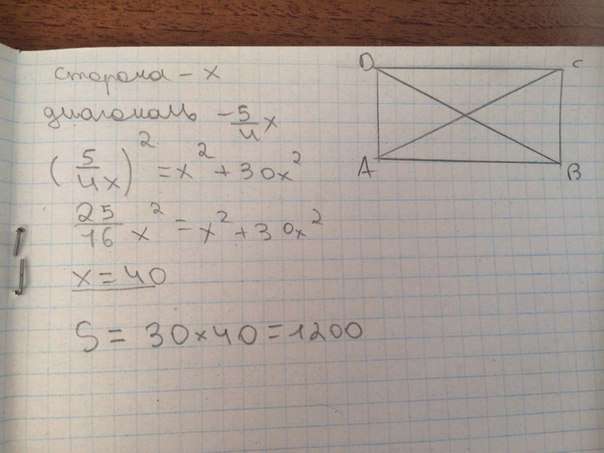 сторона - x
диагональ - 5/4 x
(5/4x)² = x² + 30x²
25/16 x² = x² + 30x²
x = 40
S = 30 × 40 = 1200
D C
A B